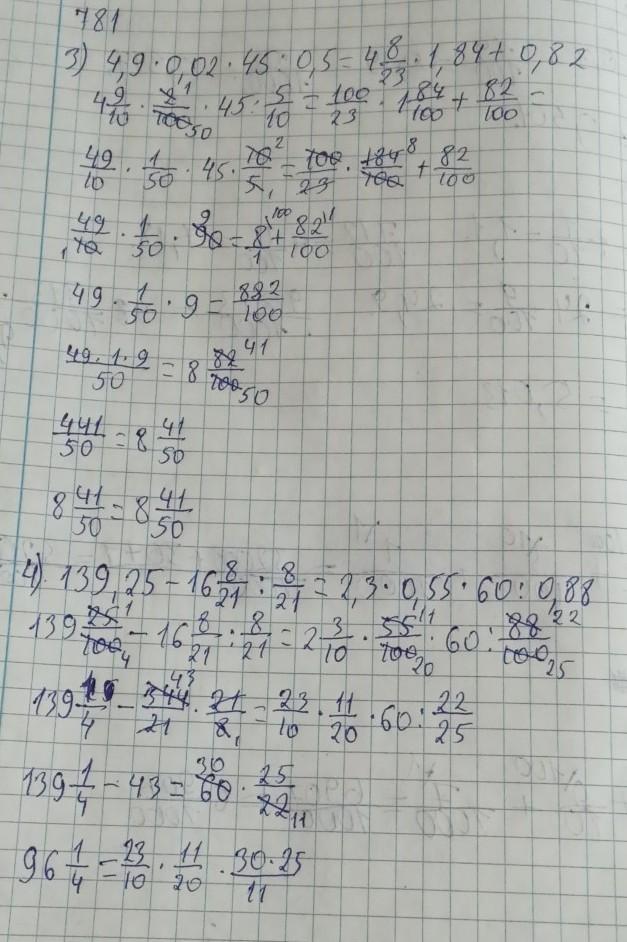 781
3) 4,9 · 0,02 · 45 : 0,5 = 4 8/23 · 1,84 + 0,82
4 9/10 · 2/100 1 50 · 45 : 5/10 = 100/23 · 1 84/100 + 82/100 =
49/10 · 1/50 · 45 · 10/5 2 1 = 100/23 · 184/100 8 + 82/100
49/10 1 · 1/50 · 90 9 = 8/1 100 + 82/100 1
49 · 1/50 · 9 = 882/100
49·1·9/50 = 8 82/100 41 50
441/50 = 8 41/50
8 41/50 = 8 41/50
4). 139,25 - 16 8/21 : 8/21 = 2,3 · 0,55 · 60 : 0,88
139 25/100 1 4 - 16 8/21 : 8/21 = 2 3/10 · 55/100 11 20 · 60 : 88/100 22 25
139 1/4 - 344/21 43 · 21/8 1 = 23/10 · 11/20 · 60 : 22/25
139 1/4 - 43 = 60 30 · 25/22 11
96 1/4 = 23/10 · 11/20 · 30·25/11